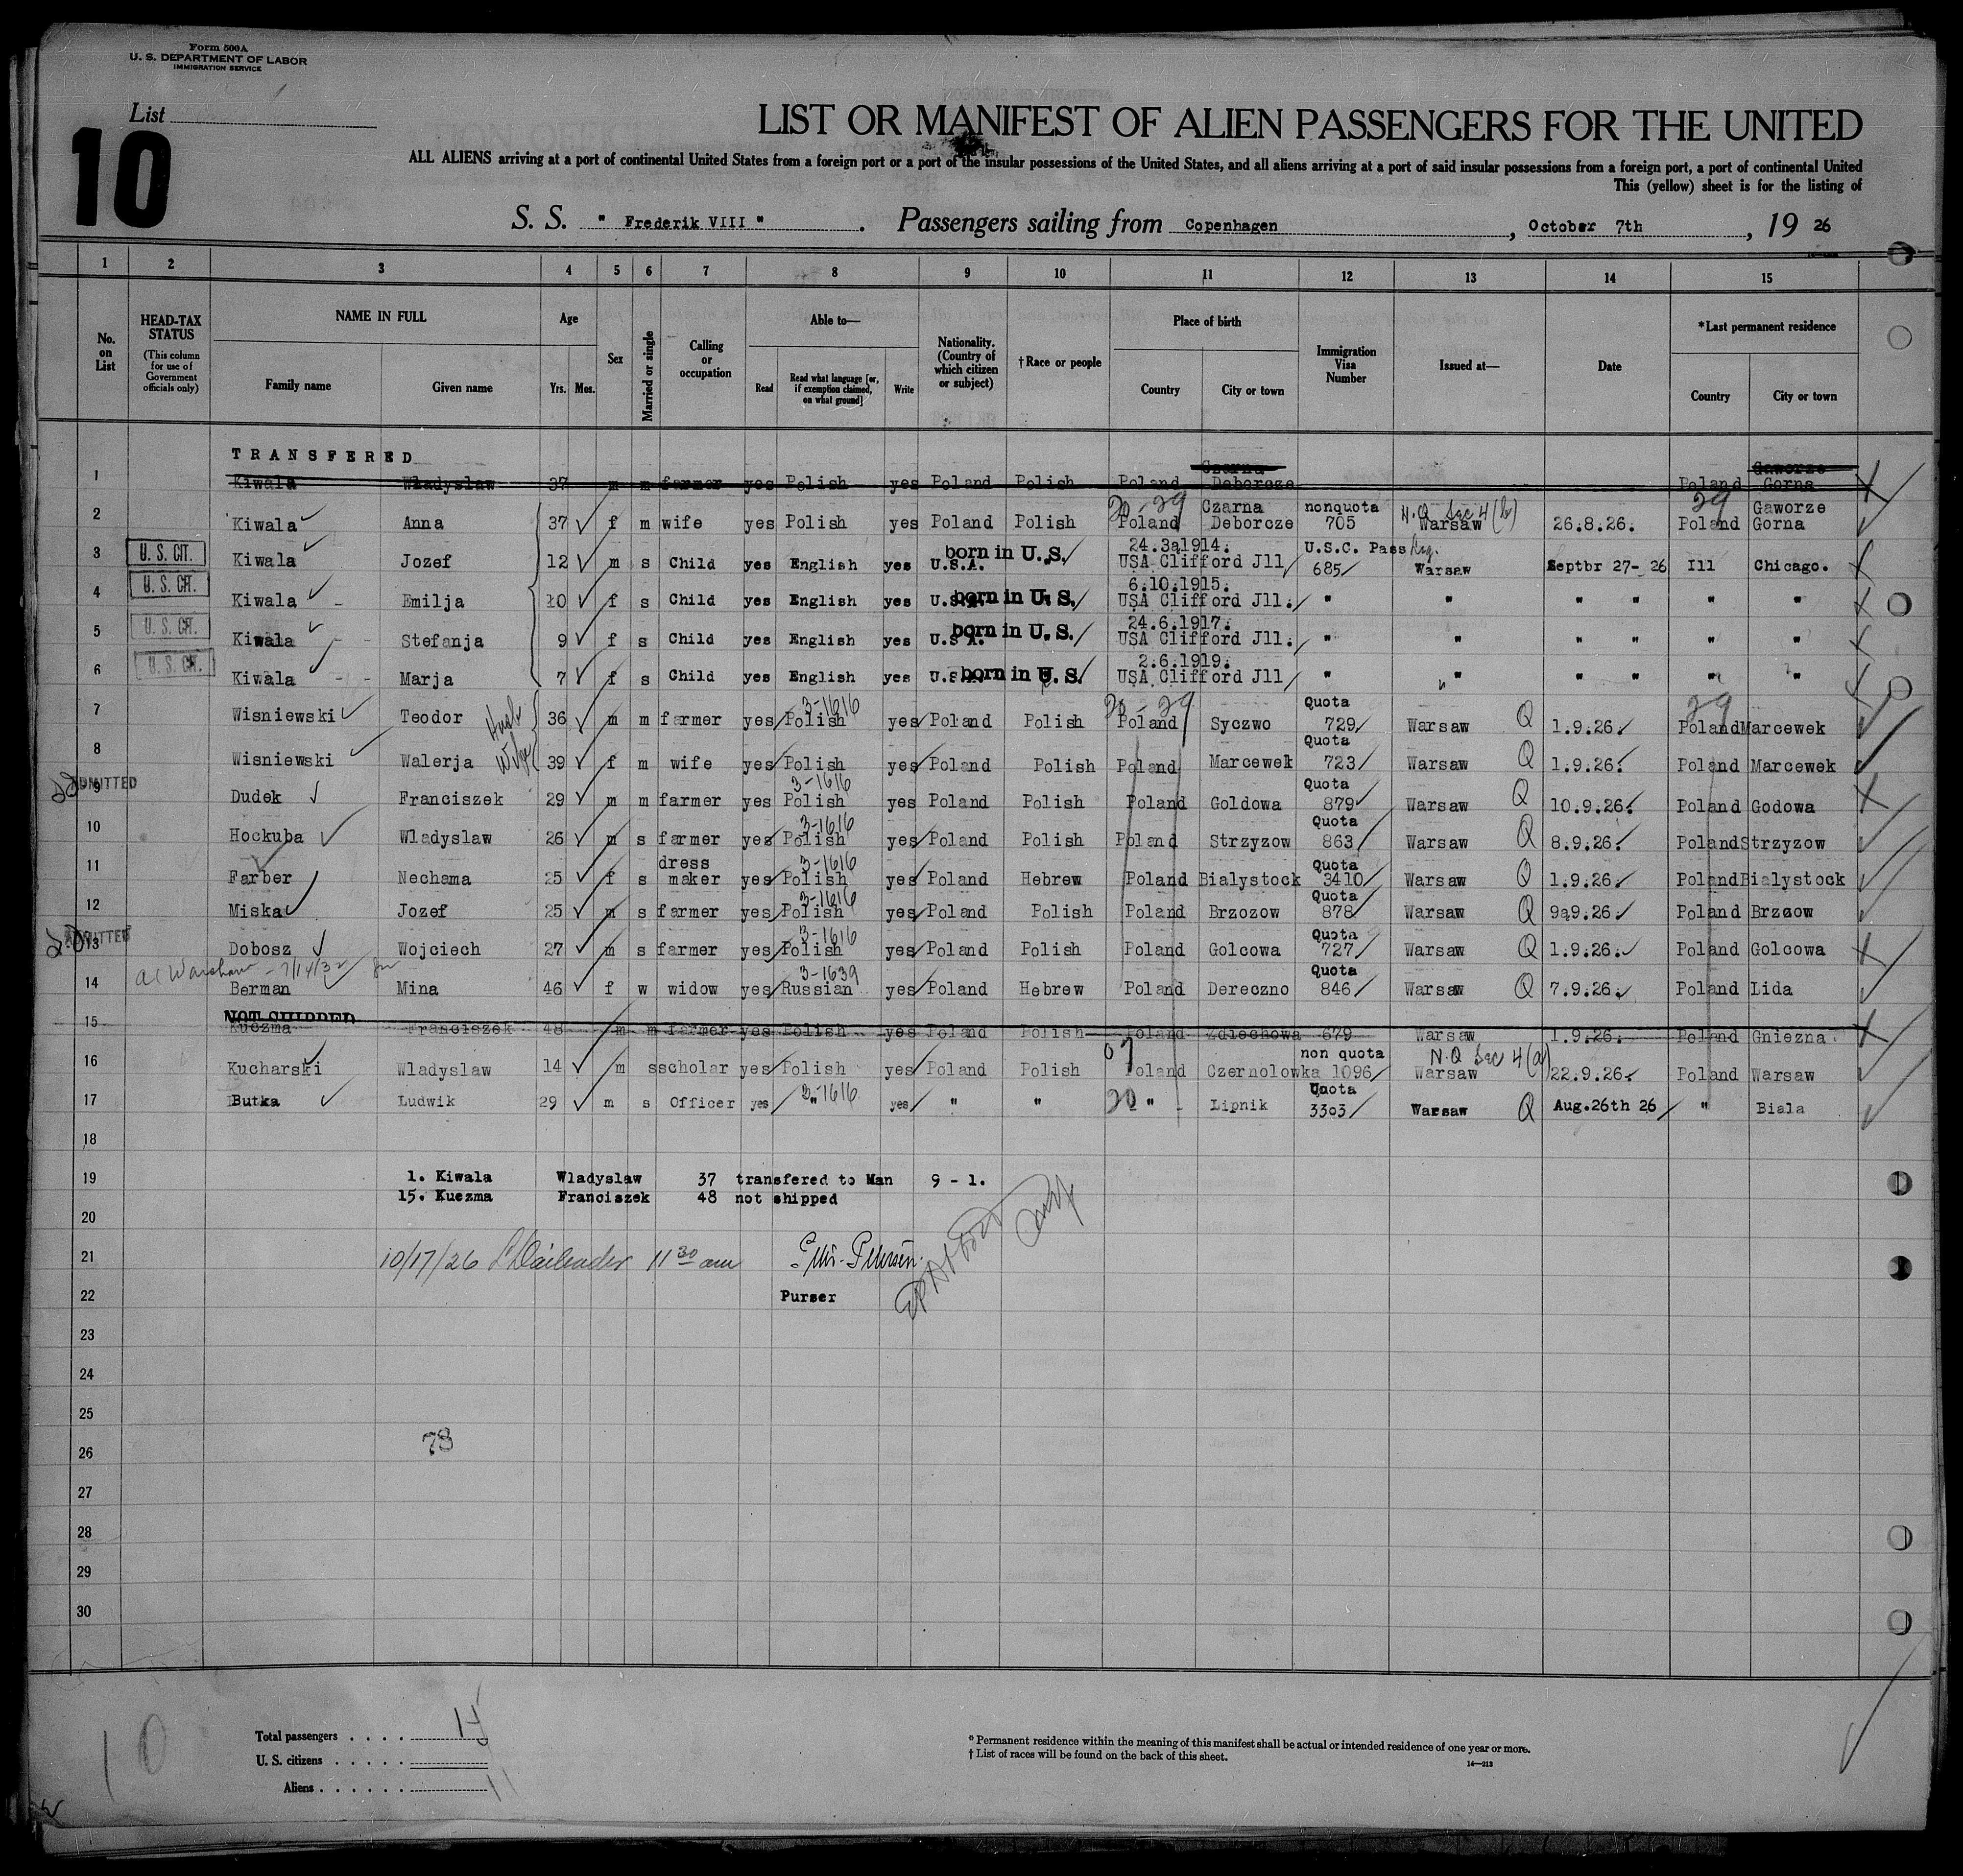 Form 500A
U. S. DEPARTMENT OF LABOR
IMMIGRATION SERVICE
List
10
LIST OR MANIFEST OF ALIEN PASSENGERS FOR THE UNITED
ALL ALIENS arriving at a port of continental United States from a foreign port or a port of the insular possessions of the United States, and all aliens arriving at a port of said insular possessions from a foreign port, a port of continental United
This (yellow) sheet is for the listing of
S. S. " Frederik VIII ". Passengers sailing from Copenhagen, October 7th, 19 26
1 2 3 4 5 6 7 8 9 10 11 12 13 14 15
No. on List
HEAD-TAX STATUS (This column for use of Government officials only)
NAME IN FULL
Family name Given name
Age
Yrs. Mos.
Sex
Married or single
Calling or occupation
Able to—
Read Read what language [or, if exemption claimed, on what ground] Write
Nationality. (Country of which citizen or subject)
† Race or people
Place of birth
Country City or town
Immigration Visa Number
Issued at—
Date
*Last permanent residence
Country City or town
TRANSFERED
Czarna Gaworze
1 Kiwala Wladyslaw 37 m m farmer yes Polish yes Poland Polish Poland Deborcze Poland Gorna
20-29 Czarna nonquota N.Q Sec 4(a) 29 Gaworze
2 Kiwala Anna 37 f m wife yes Polish yes Poland Polish Poland Deborcze 705 Warsaw 26.8.26. Poland Gorna
born in U.S. 24.3a1914. U.S.C. Pass
3 U. S. CIT. Kiwala Jozef 12 m s Child yes English yes U.S.A. USA Clifford Jll 685 Warsaw Septbr 27- 26 Ill Chicago.
6.10.1915.
4 U. S. CIT. Kiwala - Emilja 10 f s Child yes English yes U.S.A. born in U.S. USA Clifford Jll. " " " " " "
24.6.1917.
5 U. S. CIT. Kiwala - - Stefanja 9 f s Child yes English yes U.S A. born in U.S. USA Clifford Jll. " " " " " "
2.6.1919.
6 U. S. CIT. Kiwala - - Marja 7 f s Child yes English yes U.S. born in U.S. USA Clifford Jll " " " " " "
Husb 3-1616 20-29 Quota 29
7 Wisniewski Teodor 36 m m farmer yes Polish yes Poland Polish Poland Syczwo 729 Warsaw Q 1.9.26. Poland Marcewek
Wife Quota
8 Wisniewski Walerja 39 f m wife yes Polish yes Poland Polish Poland Marcewek 723 Warsaw Q 1.9.26. Poland Marcewek
ADMITTED 3-1616 Quota
9 Dudek Franciszek 29 m m farmer yes Polish yes Poland Polish Poland Goldowa 879 Warsaw Q 10.9.26. Poland Godowa
3-1616 Quota
10 Hockuba Wladyslaw 26 m s farmer yes Polish yes Poland Polish Poland Strzyzow 863 Warsaw Q 8.9.26. Poland Strzyzow
dress 3-1616 Quota
11 Farber Nechama 25 f s maker yes Polish yes Poland Hebrew Poland Bialystock 3410 Warsaw Q 1.9.26. Poland Bialystock
3-1616 Quota
12 Miska Jozef 25 m s farmer yes Polish yes Poland Polish Poland Brzozow 878 Warsaw Q 9a9.26. Poland Brzoow
ADMITTED 3-1616 Quota
13 Dobosz Wojciech 27 m s farmer yes Polish yes Poland Polish Poland Golcowa 727 Warsaw Q 1.9.26. Poland Golcowa
7/14/32 3-1639 Quota
14 Berman Mina 46 f w widow yes Russian yes Poland Hebrew Poland Dereczno 846 Warsaw Q 7.9.26. Poland Lida
NOT SHIPPED
15 Kuezma Franciszek 48 m m farmer yes Polish yes Poland Polish Poland Zdlechowa 679 Warsaw 1.9.26. Poland Gniezna
07 non quota N.Q Sec 4(a)
16 Kucharski Wladyslaw 14 m s scholar yes Polish yes Poland Polish Poland Czernolowka 1096 Warsaw 22.9.26. Poland Warsaw
3-1616 Quota
17 Butka Ludwik 29 m s Officer yes " yes " " 20 " Lipnik 3303 Warsaw Q Aug.26th 26 " Biala
18
19 1. Kiwala Wladyslaw 37 transfered to Man 9 - 1.
15. Kuezma Franciszek 48 not shipped
20
21 10/17/26 11 30 am Petersen
22 Purser
23
24
25
26 78
27
28
29
30
Total passengers . . . . 15
U. S. citizens . . . . .
Aliens . . . . . . 11
10
* Permanent residence within the meaning of this manifest shall be actual or intended residence of one year or more.
† List of races will be found on the back of this sheet.
14—213